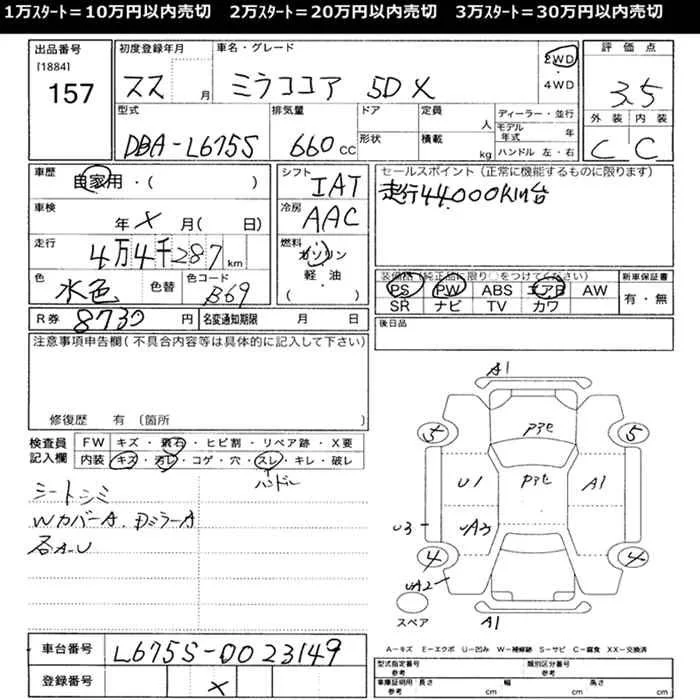 1万ｽﾀｰﾄ＝10万円以内売切 2万ｽﾀｰﾄ＝20万円以内売切 3万ｽﾀｰﾄ＝30万円以内売切
出品番号 初度登録年月 車名・グレード 評価点
[1884]
157
月 ミラココア 5D X 2WD
・
4WD
3.5
型式 排気量 ドア 定員 人 ディーラー・並行 外装 内装
DBA-L675S 660cc 形状 積載 kg モデル年式 年 C C
ハンドル 左・右
車歴 自家用・( )
シフト IAT
セールスポイント(正常に機能するものに限ります)
走行44,000km台
車検 年 X 月( 日)
冷房 AAC
走行 4万4千287km
燃料 ガソリン
軽・油
( )
色 水色 色替 色コード B69
装備品(純正品に限り○をつけてください) 新車保証書
PS PW ABS エアB AW 有・無
SR ナビ TV カワ
R券 8730円 名変通知期限 月 日
後日品
注意事項申告欄(不具合内容等は具体的に記入して下さい)
修復歴 有 (箇所
検査員記入欄 FW キズ・飛石・ヒビ割・リペア跡・X要
内装 キズ・汚レ・コゲ・穴・スレ・キレ・破レ
ハンドル
シートシミ
WカバーA.DミラーA
各A-U
A1
5 5
U1 A1
U3 UA3
4 4
UA2
スペア A1
A-キズ E-エクボ U-凹み W-補修跡 S-サビ C-腐食 XX-交換済
車台番号 L675S-0023149
登録番号 X
型式指定番号 参考 類別区分番号 参考
車庫証明用・長さ 参考 cm 幅 cm 高さ cm